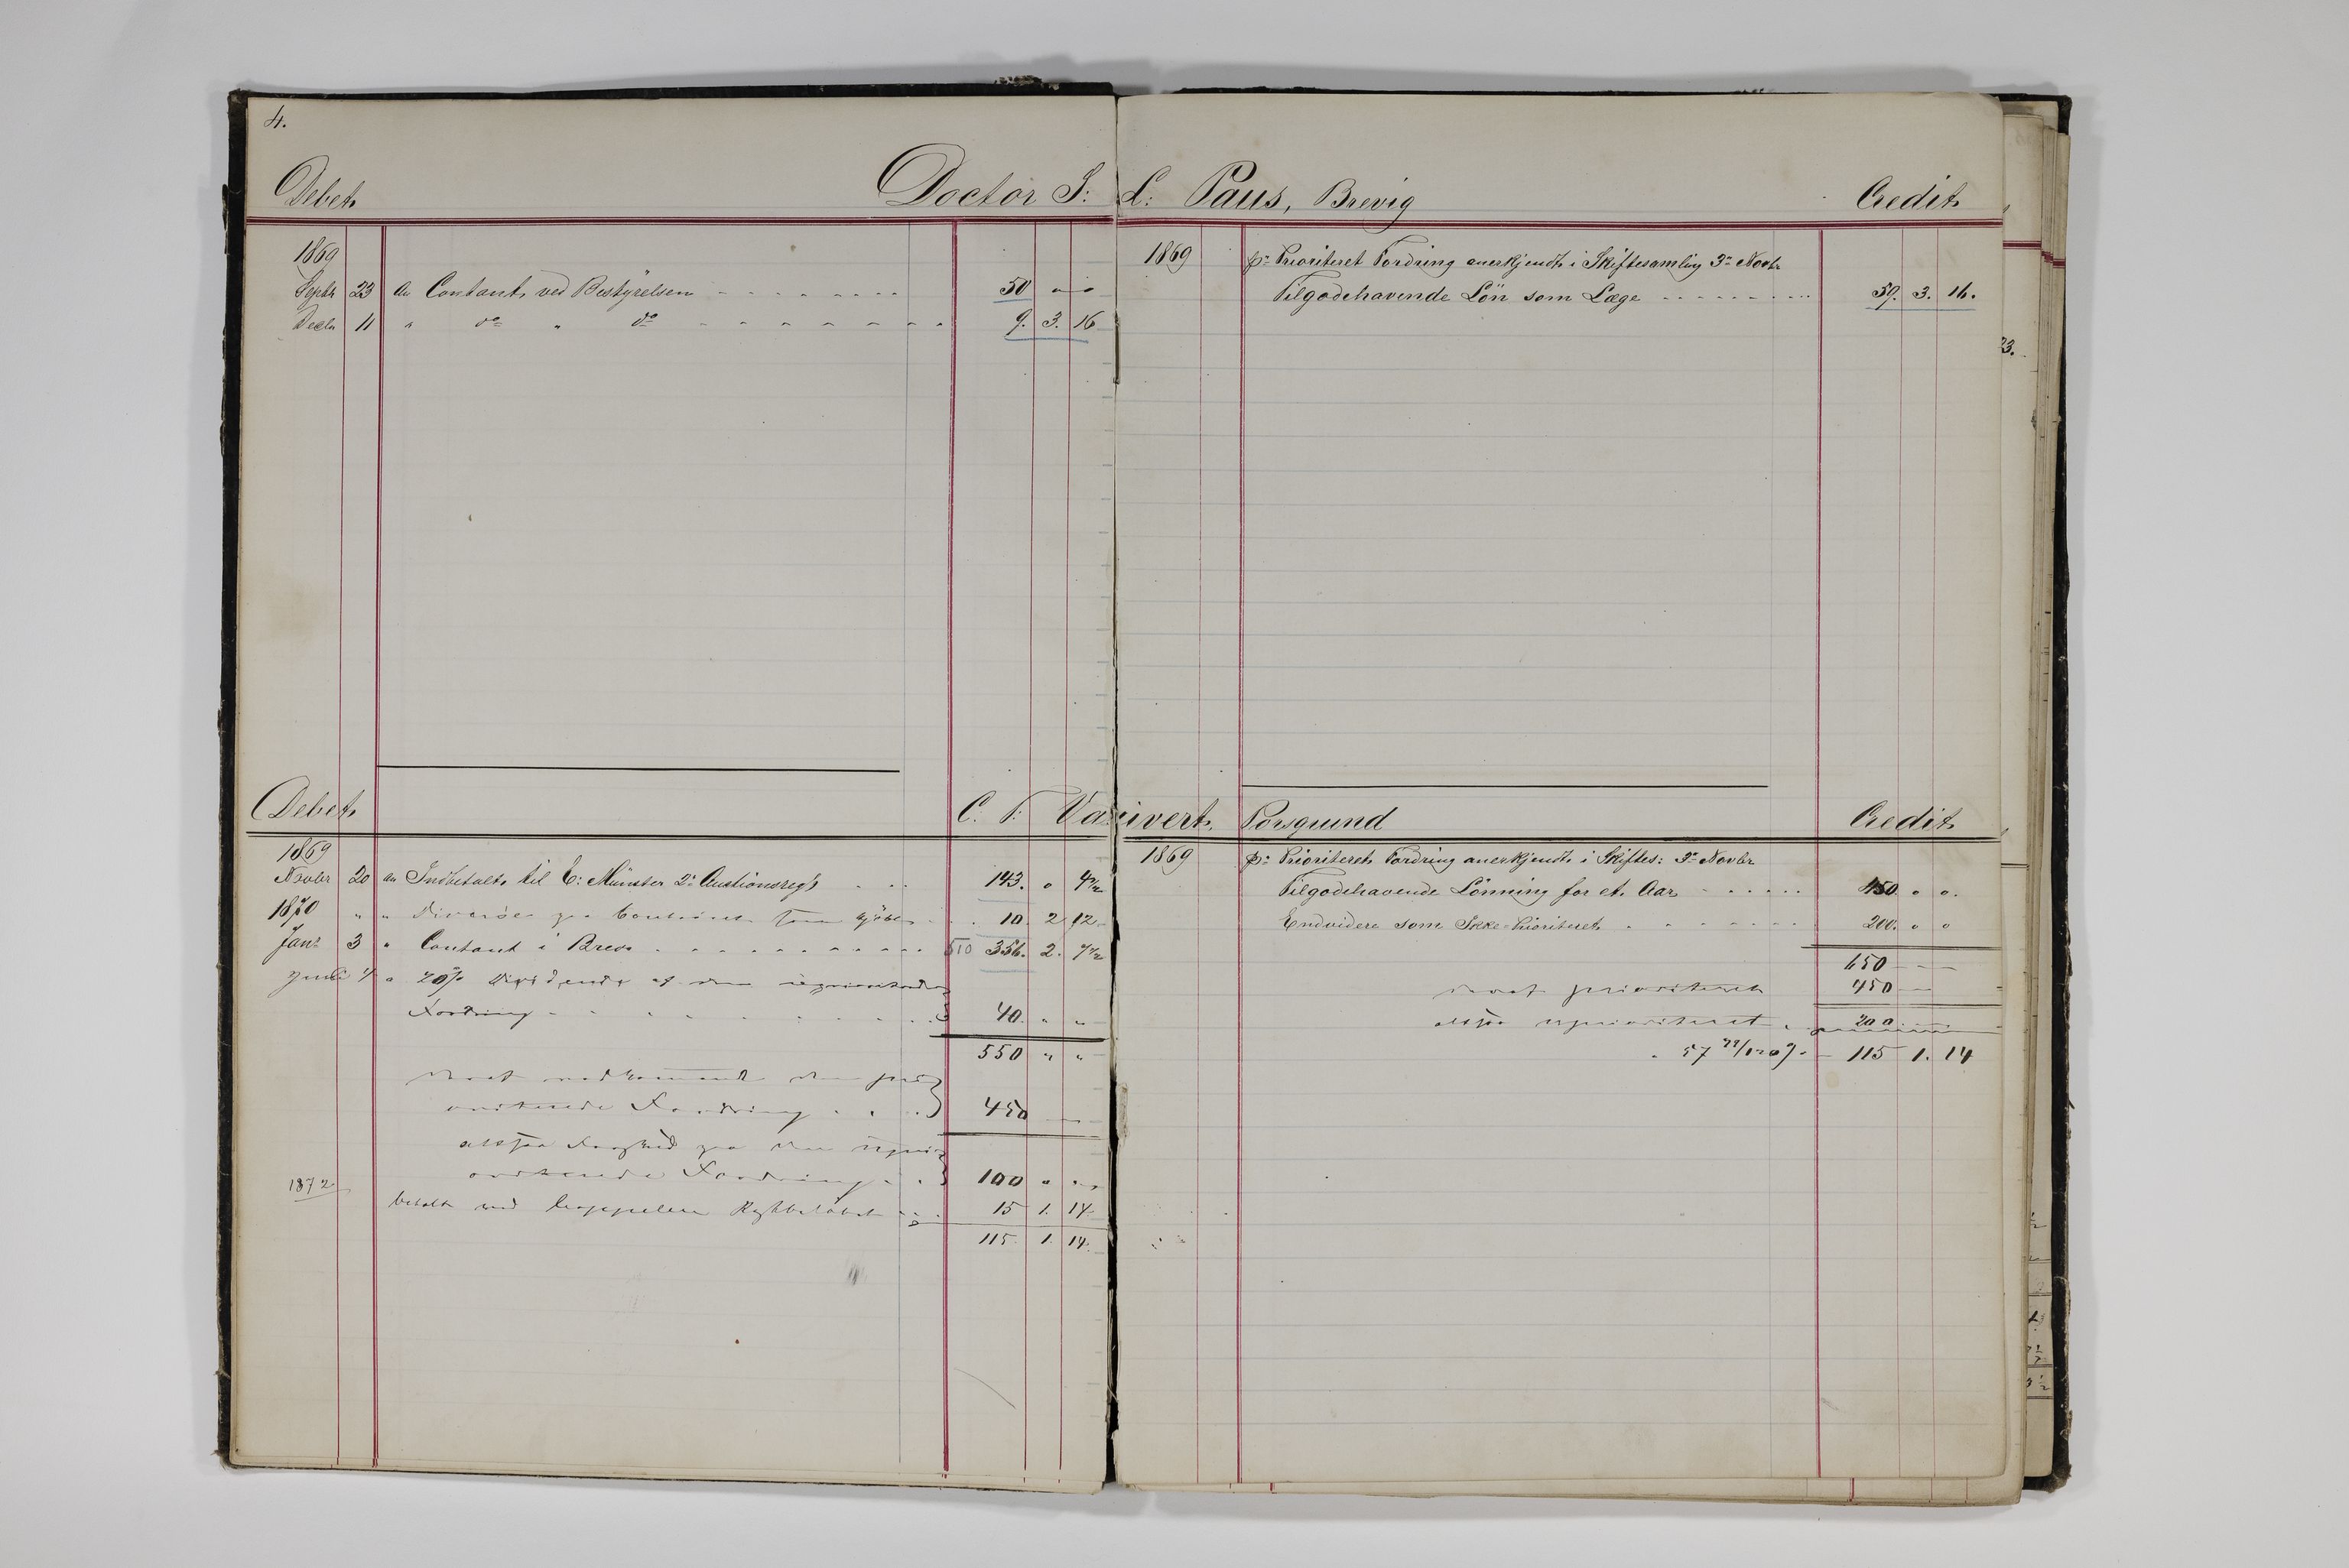 4.
Debet Doctor I: L: Paus, Brevig Credit
1869
Septbr 23 An Contant ved Bestÿrelsen 50 " "
Decbr 11 " do " do 9. 3. 16
1869 pr Prioriteret Fordring anerkjendt i Skiftesamling 3die Novbr
Tilgodehavende Lön som Læge 59. 3. 16.
Debet C. F: Vauvert, Porsgrund Credit
1869
Novbr 20 an Indbetalt til E: Münster 2. Auctionsreg 143. " 4 1/2
1870 " " 10. 2 12
Janr 3 " Contant i Brev 510 356. 2. 7 1/2
Juni " 20% Dividende af den uprioriterede
Fordring 40. " "
550 " "
den pri-
oriterede Fordring 450
altsaa paa den upri-
oriterede Fordring 100 " "
1872
betalt ved 15 1. 14
115. 1. 14
1869 pr Prioriteret Fordring anerkjendt i Skiftes: 3die Novbr
Tilgodehavende Lönning for et Aar 450 " "
Endvidere som Ikke-Prioriteret 200. " "
650
prioriteret 450
altsaa uprioriteret 200
115 1. 14